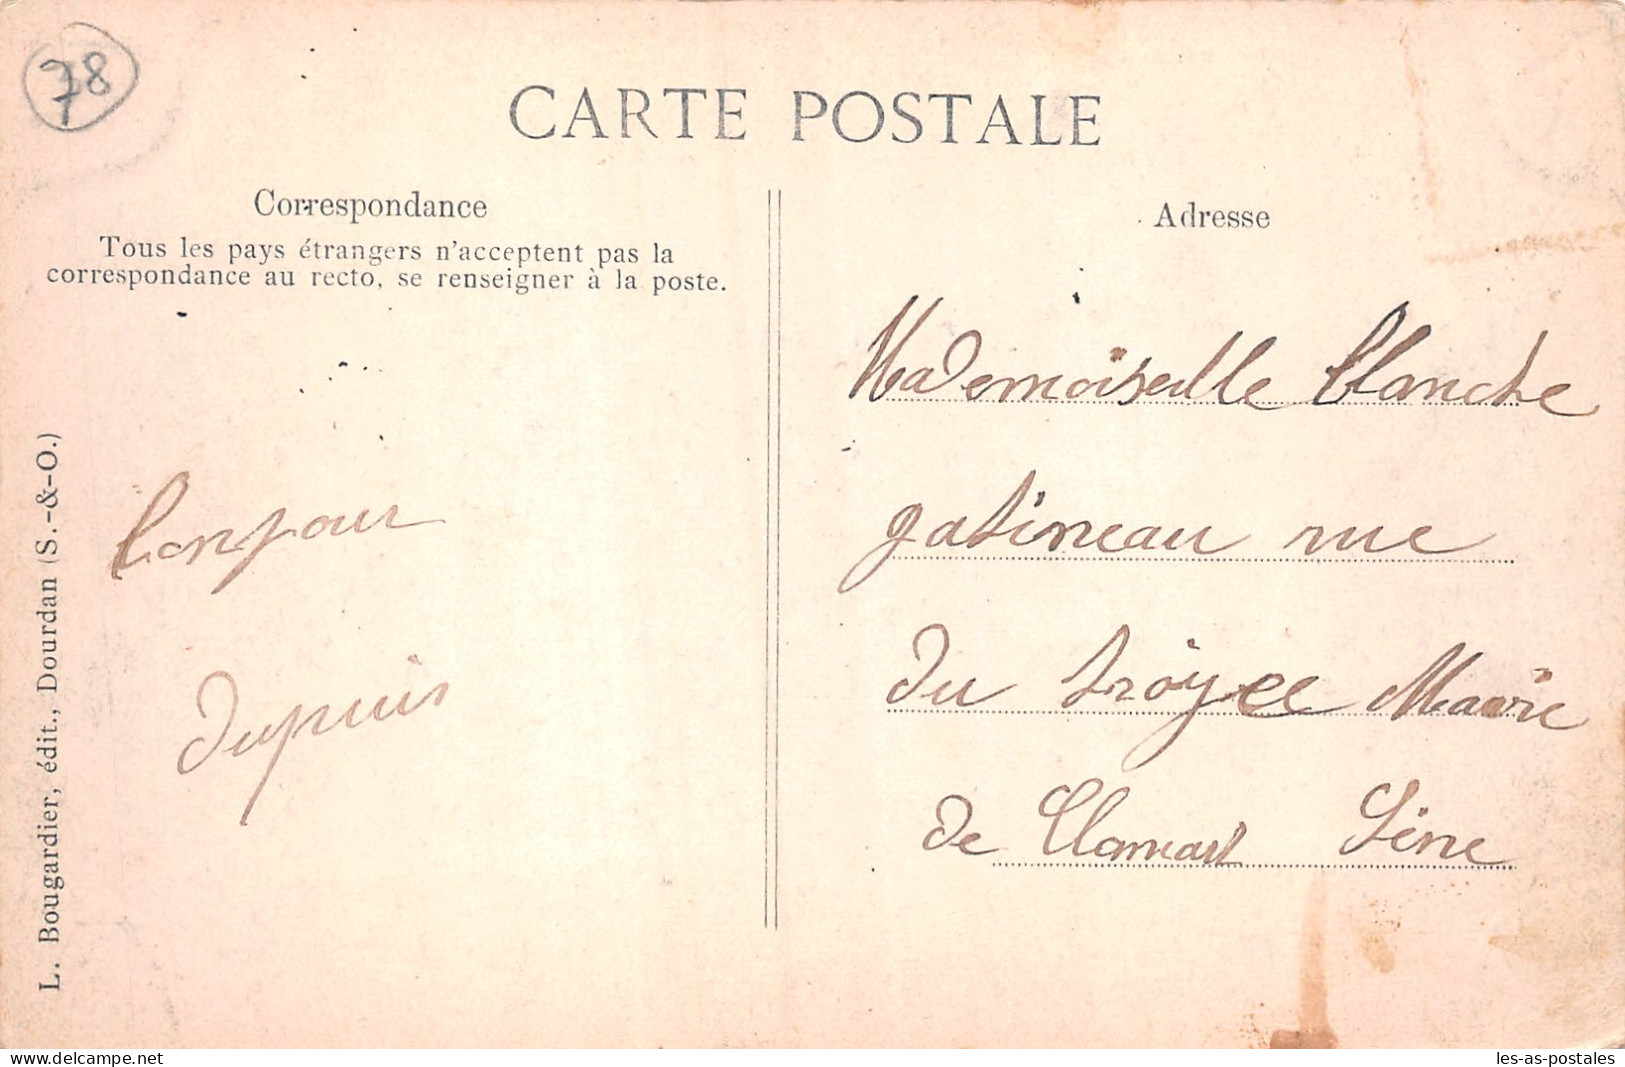 78
CARTE POSTALE
Correspondance
Tous les pays étrangers n'acceptent pas la
correspondance au recto, se renseigner à la poste.
Adresse
Mademoiselle Blanche
gatineau rue
du troyee Mavie
de Clamart Séine
bonjour
dupuis
L. Bougardier, édit., Dourdan (S.-&-O.)
delcampe.net
les-as-postales